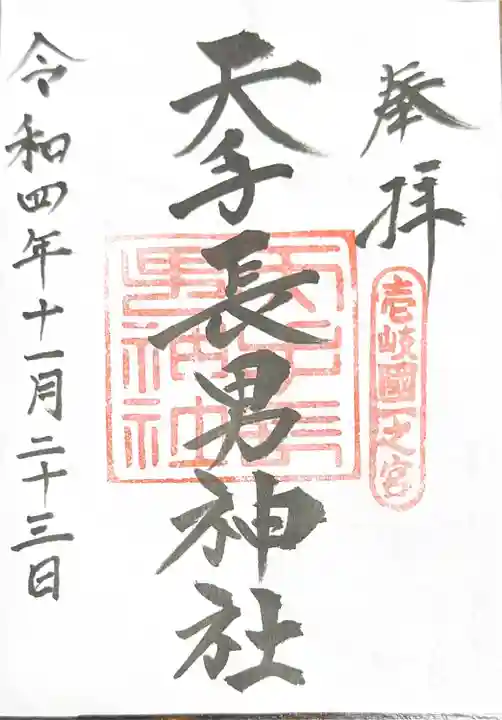 奉拝
壱岐國一之宮
天手長男神社
天手長男神社
令和四年十一月二十三日